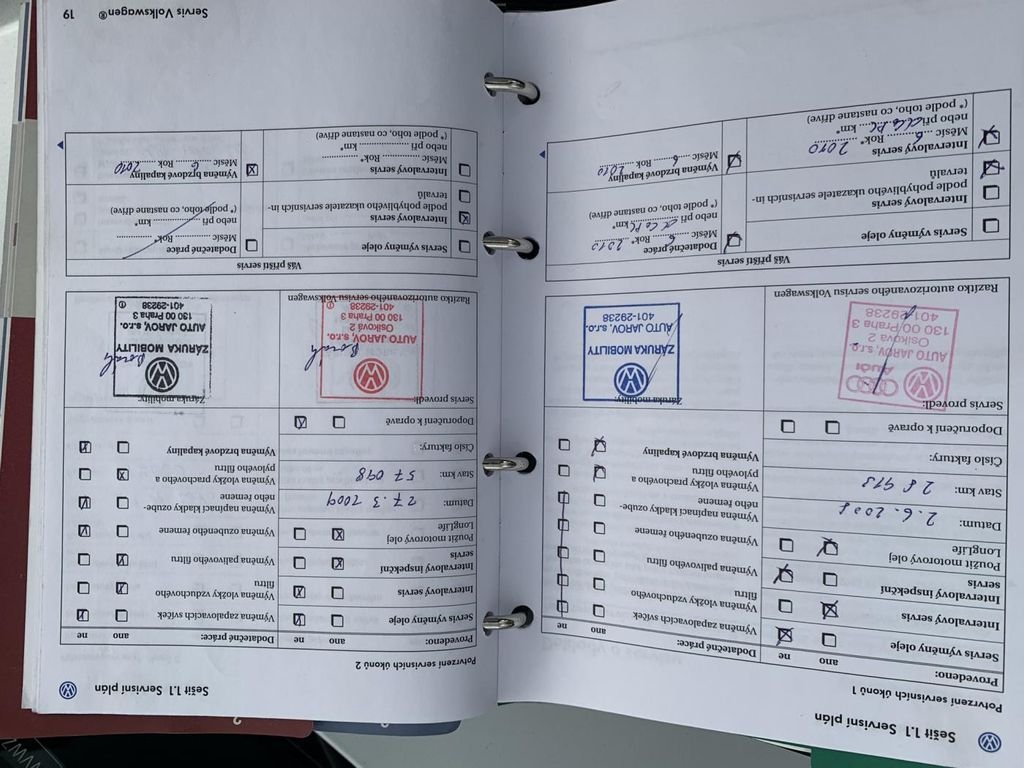 Sešit 1.1 Servisní plán
Potvrzení servisních úkonů 1
Provedeno:
ano
ne
Servis výměny oleje
Intervalový servis
Intervalový inspekční
servis
Použit motorový olej
LongLife
Datum: 2.6. 2008
Stav km: 28 973
Číslo faktury:
Doporučení k opravě
Servis provedl:
Audi
AUTO JAROV, s.r.o.
Osiková 2
130 00 Praha 3
401-29238
Razítko autorizovaného servisu Volkswagen
Dodatečné práce:
ano
ne
Výměna zapalovacích svíček
Výměna vložky vzduchového
filtru
Výměna palivového filtru
Výměna ozubeného řemene
Výměna napínací kladky ozube-
ného řemene
Výměna vložky prachového a
pylového filtru
Výměna brzdové kapaliny
Záruka mobility:
ZÁRUKA MOBILITY
AUTO JAROV, s.r.o.
401-29238
Váš příští servis
Servis výměny oleje
Intervalový servis
podle pohyblivého ukazatele servisních in-
tervalů
Intervalový servis
Měsíc 6 Rok* 2010
nebo při dle PC km*
(* podle toho, co nastane dříve)
Dodatečné práce
Měsíc 6 Rok* 2010
nebo při dle PC km*
(* podle toho, co nastane dříve)
Výměna brzdové kapaliny
Měsíc 6 Rok 2010
Sešit 1.1 Servisní plán
Potvrzení servisních úkonů 2
Provedeno:
ano
ne
Servis výměny oleje
Intervalový servis
Intervalový inspekční
servis
Použit motorový olej
LongLife
Datum: 27. 3 2009
Stav km: 57 098
Číslo faktury:
Doporučení k opravě
Servis provedl:
AUTO JAROV, s.r.o.
Osiková 2
130 00 Praha 3
401-29238
Razítko autorizovaného servisu Volkswagen
Dodatečné práce:
ano
ne
Výměna zapalovacích svíček
Výměna vložky vzduchového
filtru
Výměna palivového filtru
Výměna ozubeného řemene
Výměna napínací kladky ozube-
ného řemene
Výměna vložky prachového a
pylového filtru
Výměna brzdové kapaliny
Záruka mobility:
ZÁRUKA MOBILITY
AUTO JAROV, s.r.o.
130 00 Praha 3
401-29238
Váš příští servis
Servis výměny oleje
Intervalový servis
podle pohyblivého ukazatele servisních in-
tervalů
Intervalový servis
Měsíc Rok*
nebo při km*
(* podle toho, co nastane dříve)
Dodatečné práce
Měsíc Rok*
nebo při km*
(* podle toho, co nastane dříve)
Výměna brzdové kapaliny
Měsíc 6 Rok 2010
Servis Volkswagen® 19